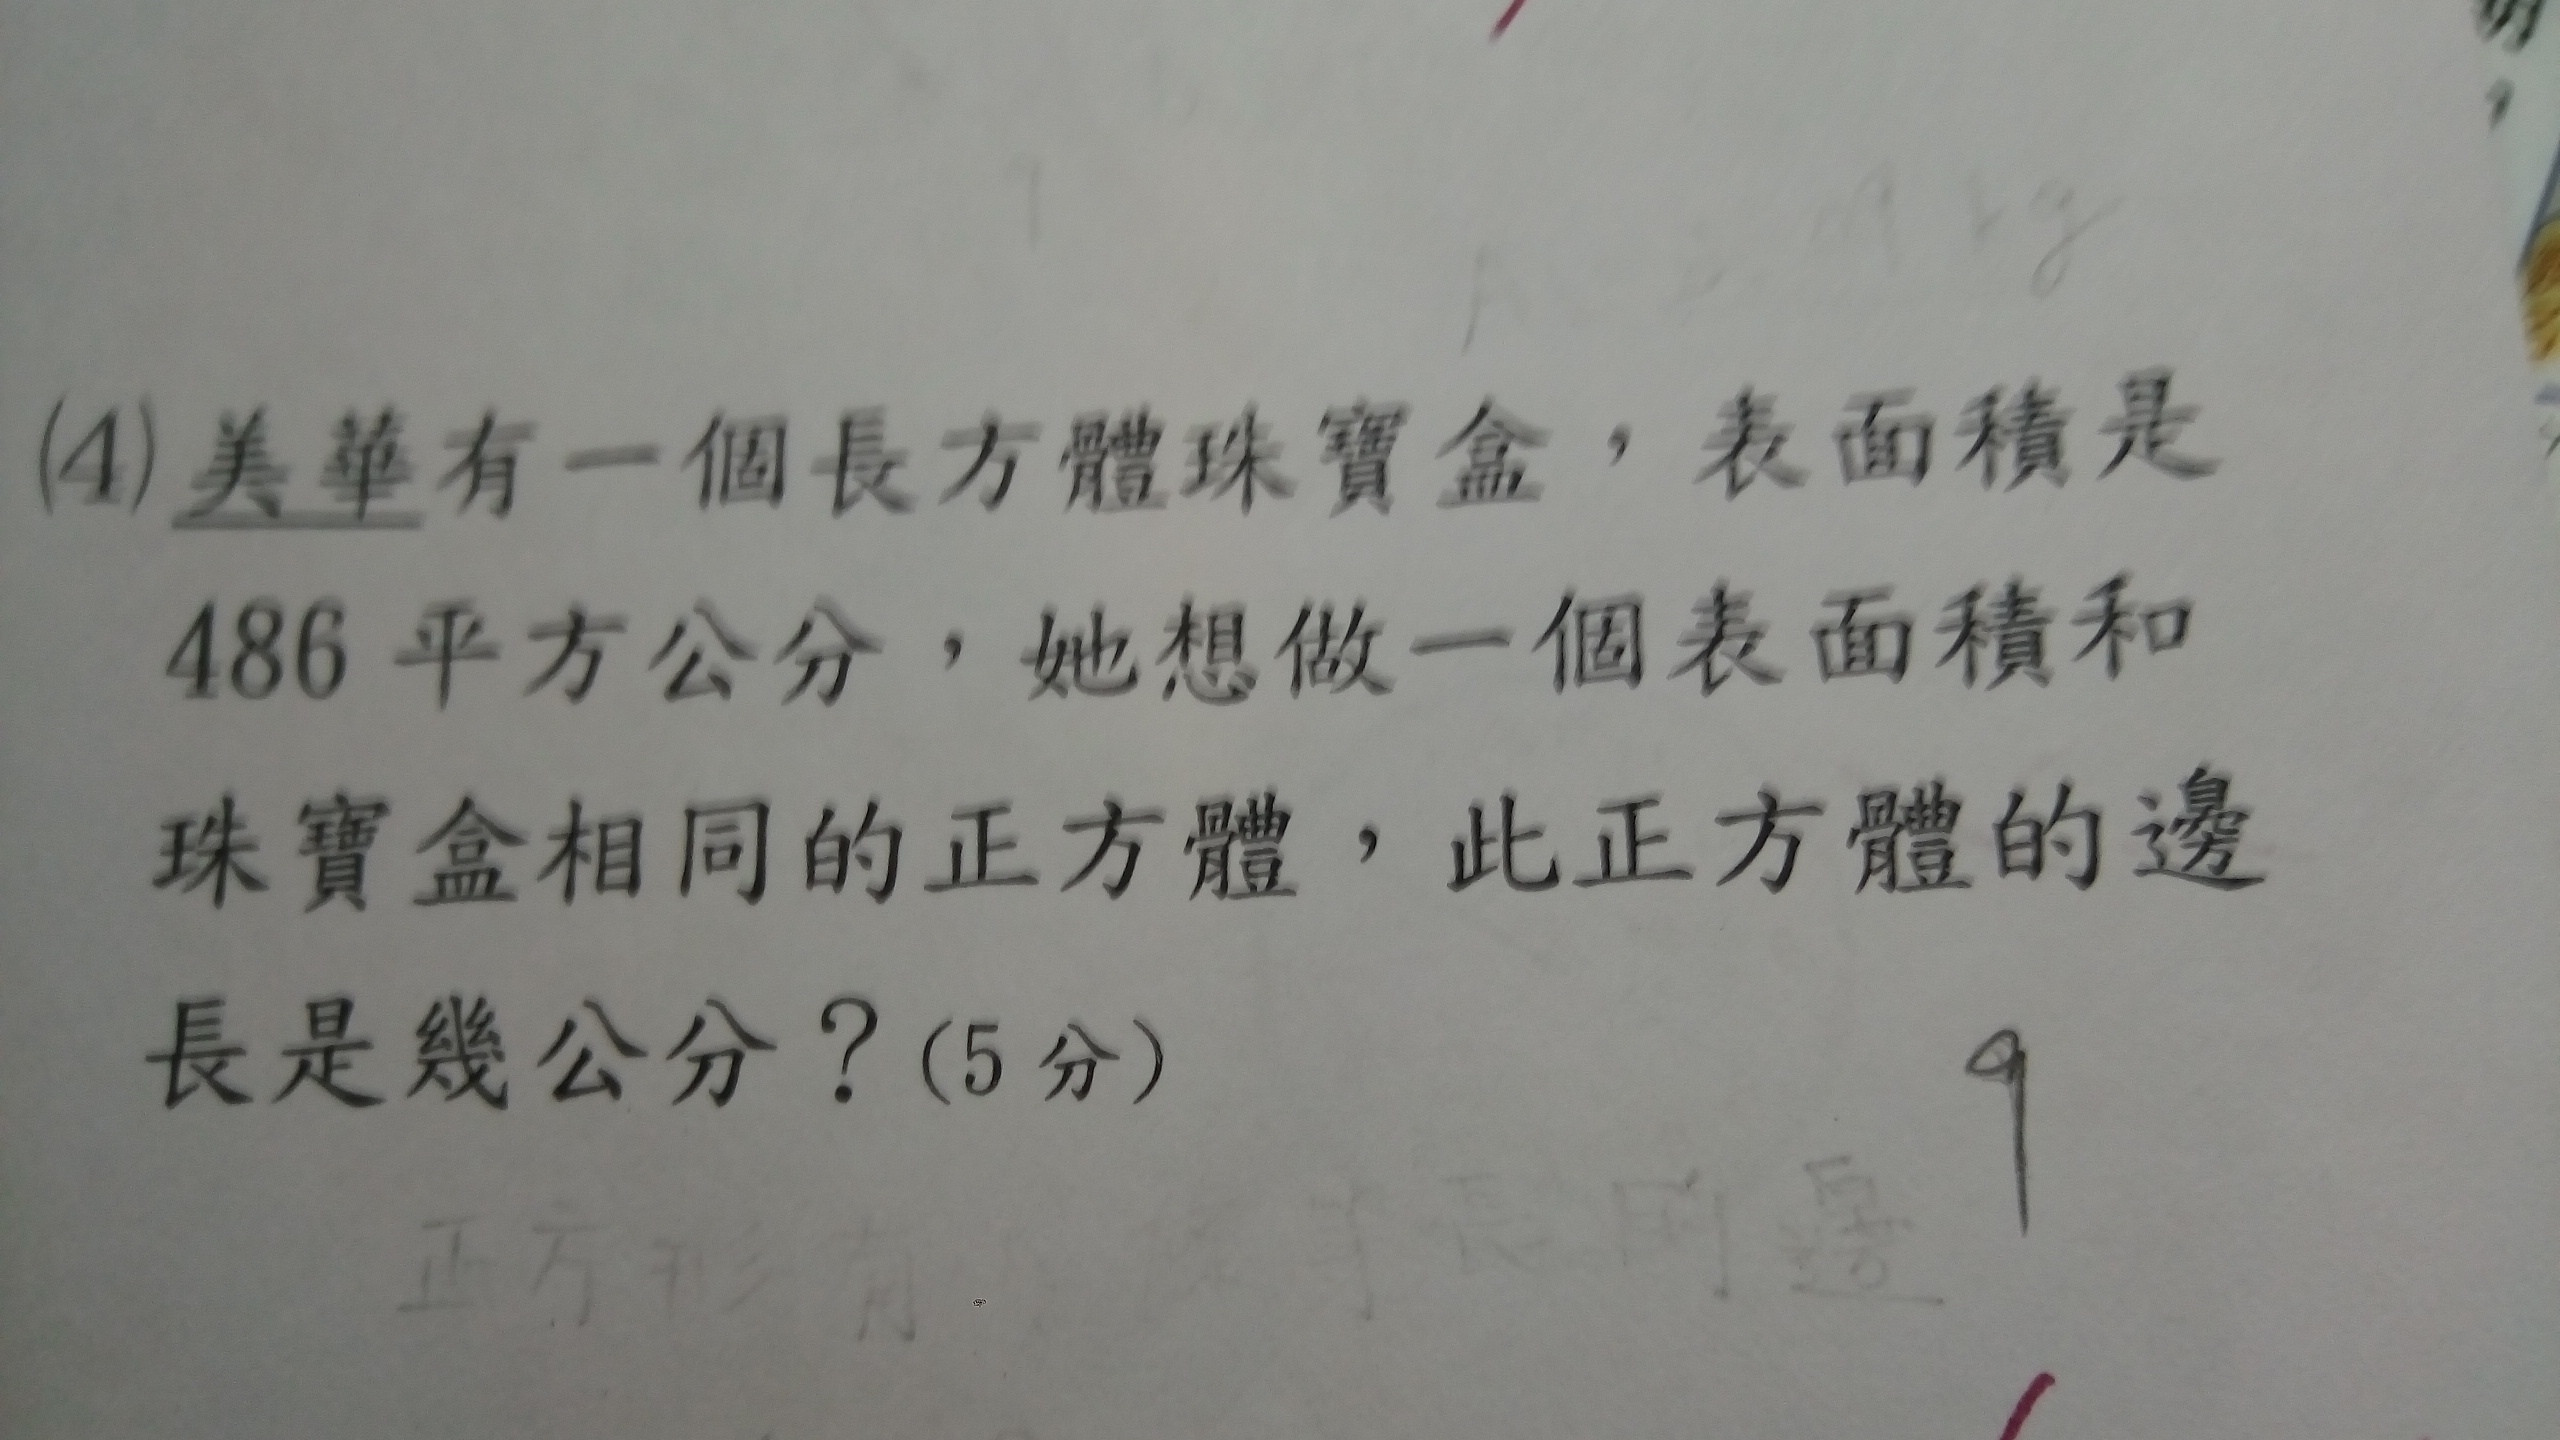 明，
⑷美華有一個長方體珠寶盒，表面積是
486 平方公分，她想做一個表面積和
珠寶盒相同的正方體，此正方體的邊
長是幾公分？(5 分)
9
正方形有